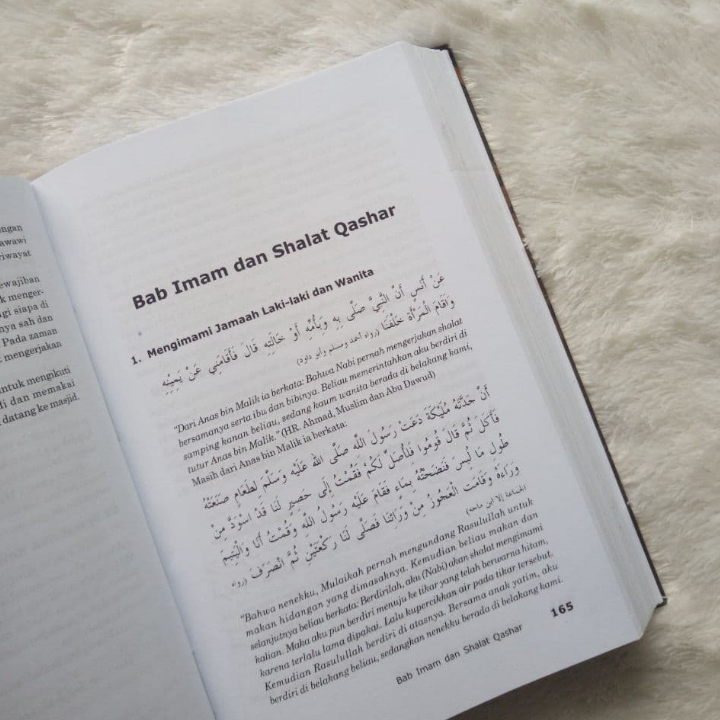 ngan
awawi
riwayat
ewajiban
k menger-
gi siapa di
nya sah dan
Pada zaman
mengerjakan
ntuk mengikuti
li dan memakai
datang ke masjid.
Bab Imam dan Shalat Qashar
1. Mengimami Jamaah Laki-laki dan Wanita
عَنْ أَنَسٍ أَنَّ النَّبِيَّ صَلَّى بِهِ وَبِأُمِّهِ أَوْ خَالَتِهِ قَالَ فَأَقَامَنِي عَنْ يَمِيْنِهِ
وَأَقَامَ الْمَرْأَةَ خَلْفَنَا (رواه أحمد ومسلم وأبو داود)
"Dari Anas bin Malik ia berkata: Bahwa Nabi pernah mengerjakan shalat
bersamanya serta ibu dan bibinya. Beliau memerintahkan aku berdiri di
samping kanan beliau, sedang kaum wanita berada di belakang kami,
tutur Anas bin Malik." (HR. Ahmad, Muslim dan Abu Dawud)
Masih dari Anas bin Malik ia berkata:
أَنَّ جَدَّتَهُ مُلَيْكَةَ دَعَتْ رَسُولَ اللَّهِ صَلَّى اللَّهُ عَلَيْهِ وَسَلَّمَ لِطَعَامٍ صَنَعَتْهُ
فَأَكَلَ ثُمَّ قَالَ قُومُوا فَلِأُصَلِّ لَكُمْ فَقُمْتُ إِلَى حَصِيرٍ لَنَا قَدْ اسْوَدَّ مِنْ
طُولِ مَا لُبِسَ فَنَضَحْتُهُ بِمَاءٍ فَقَامَ عَلَيْهِ رَسُولُ اللَّهِ وَقُمْتُ أَنَا وَالْيَتِيمُ
وَرَاءَهُ وَقَامَتْ الْعَجُوزُ مِنْ وَرَائِنَا فَصَلَّى لَنَا رَكْعَتَيْنِ ثُمَّ انْصَرَفَ (رواه
الجماعة إلا ابن ماجه)
"Bahwa nenekku, Mulaikah pernah mengundang Rasulullah untuk
makan hidangan yang dimasaknya. Kemudian beliau makan dan
selanjutnya beliau berkata: Berdirilah, aku (Nabi) akan shalat mengimami
kalian. Maka aku pun berdiri menuju ke tikar yang telah berwarna hitam,
karena terlalu lama dipakai. Lalu kupercikkan air pada tikar tersebut.
Kemudian Rasulullah berdiri di atasnya. Bersama anak yatim, aku
berdiri di belakang beliau, sedangkan nenekku berada di belakang kami.
Bab Imam dan Shalat Qashar 165